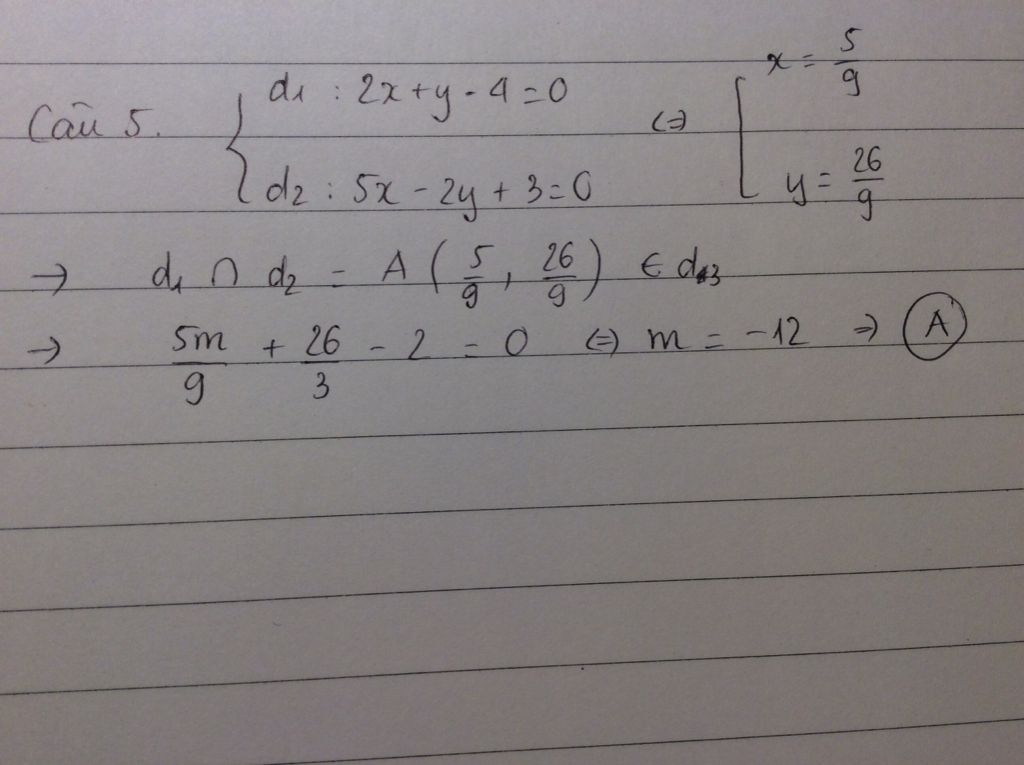 x = 5/9
Câu 5. { d1 : 2x + y - 4 = 0 ⇔ [
d2 : 5x - 2y + 3 = 0 y = 26/9
→ d1 ∩ d2 = A (5/9, 26/9) ∈ d3
→ 5m/9 + 26/3 - 2 = 0 ⇔ m = -12 ⇒ A